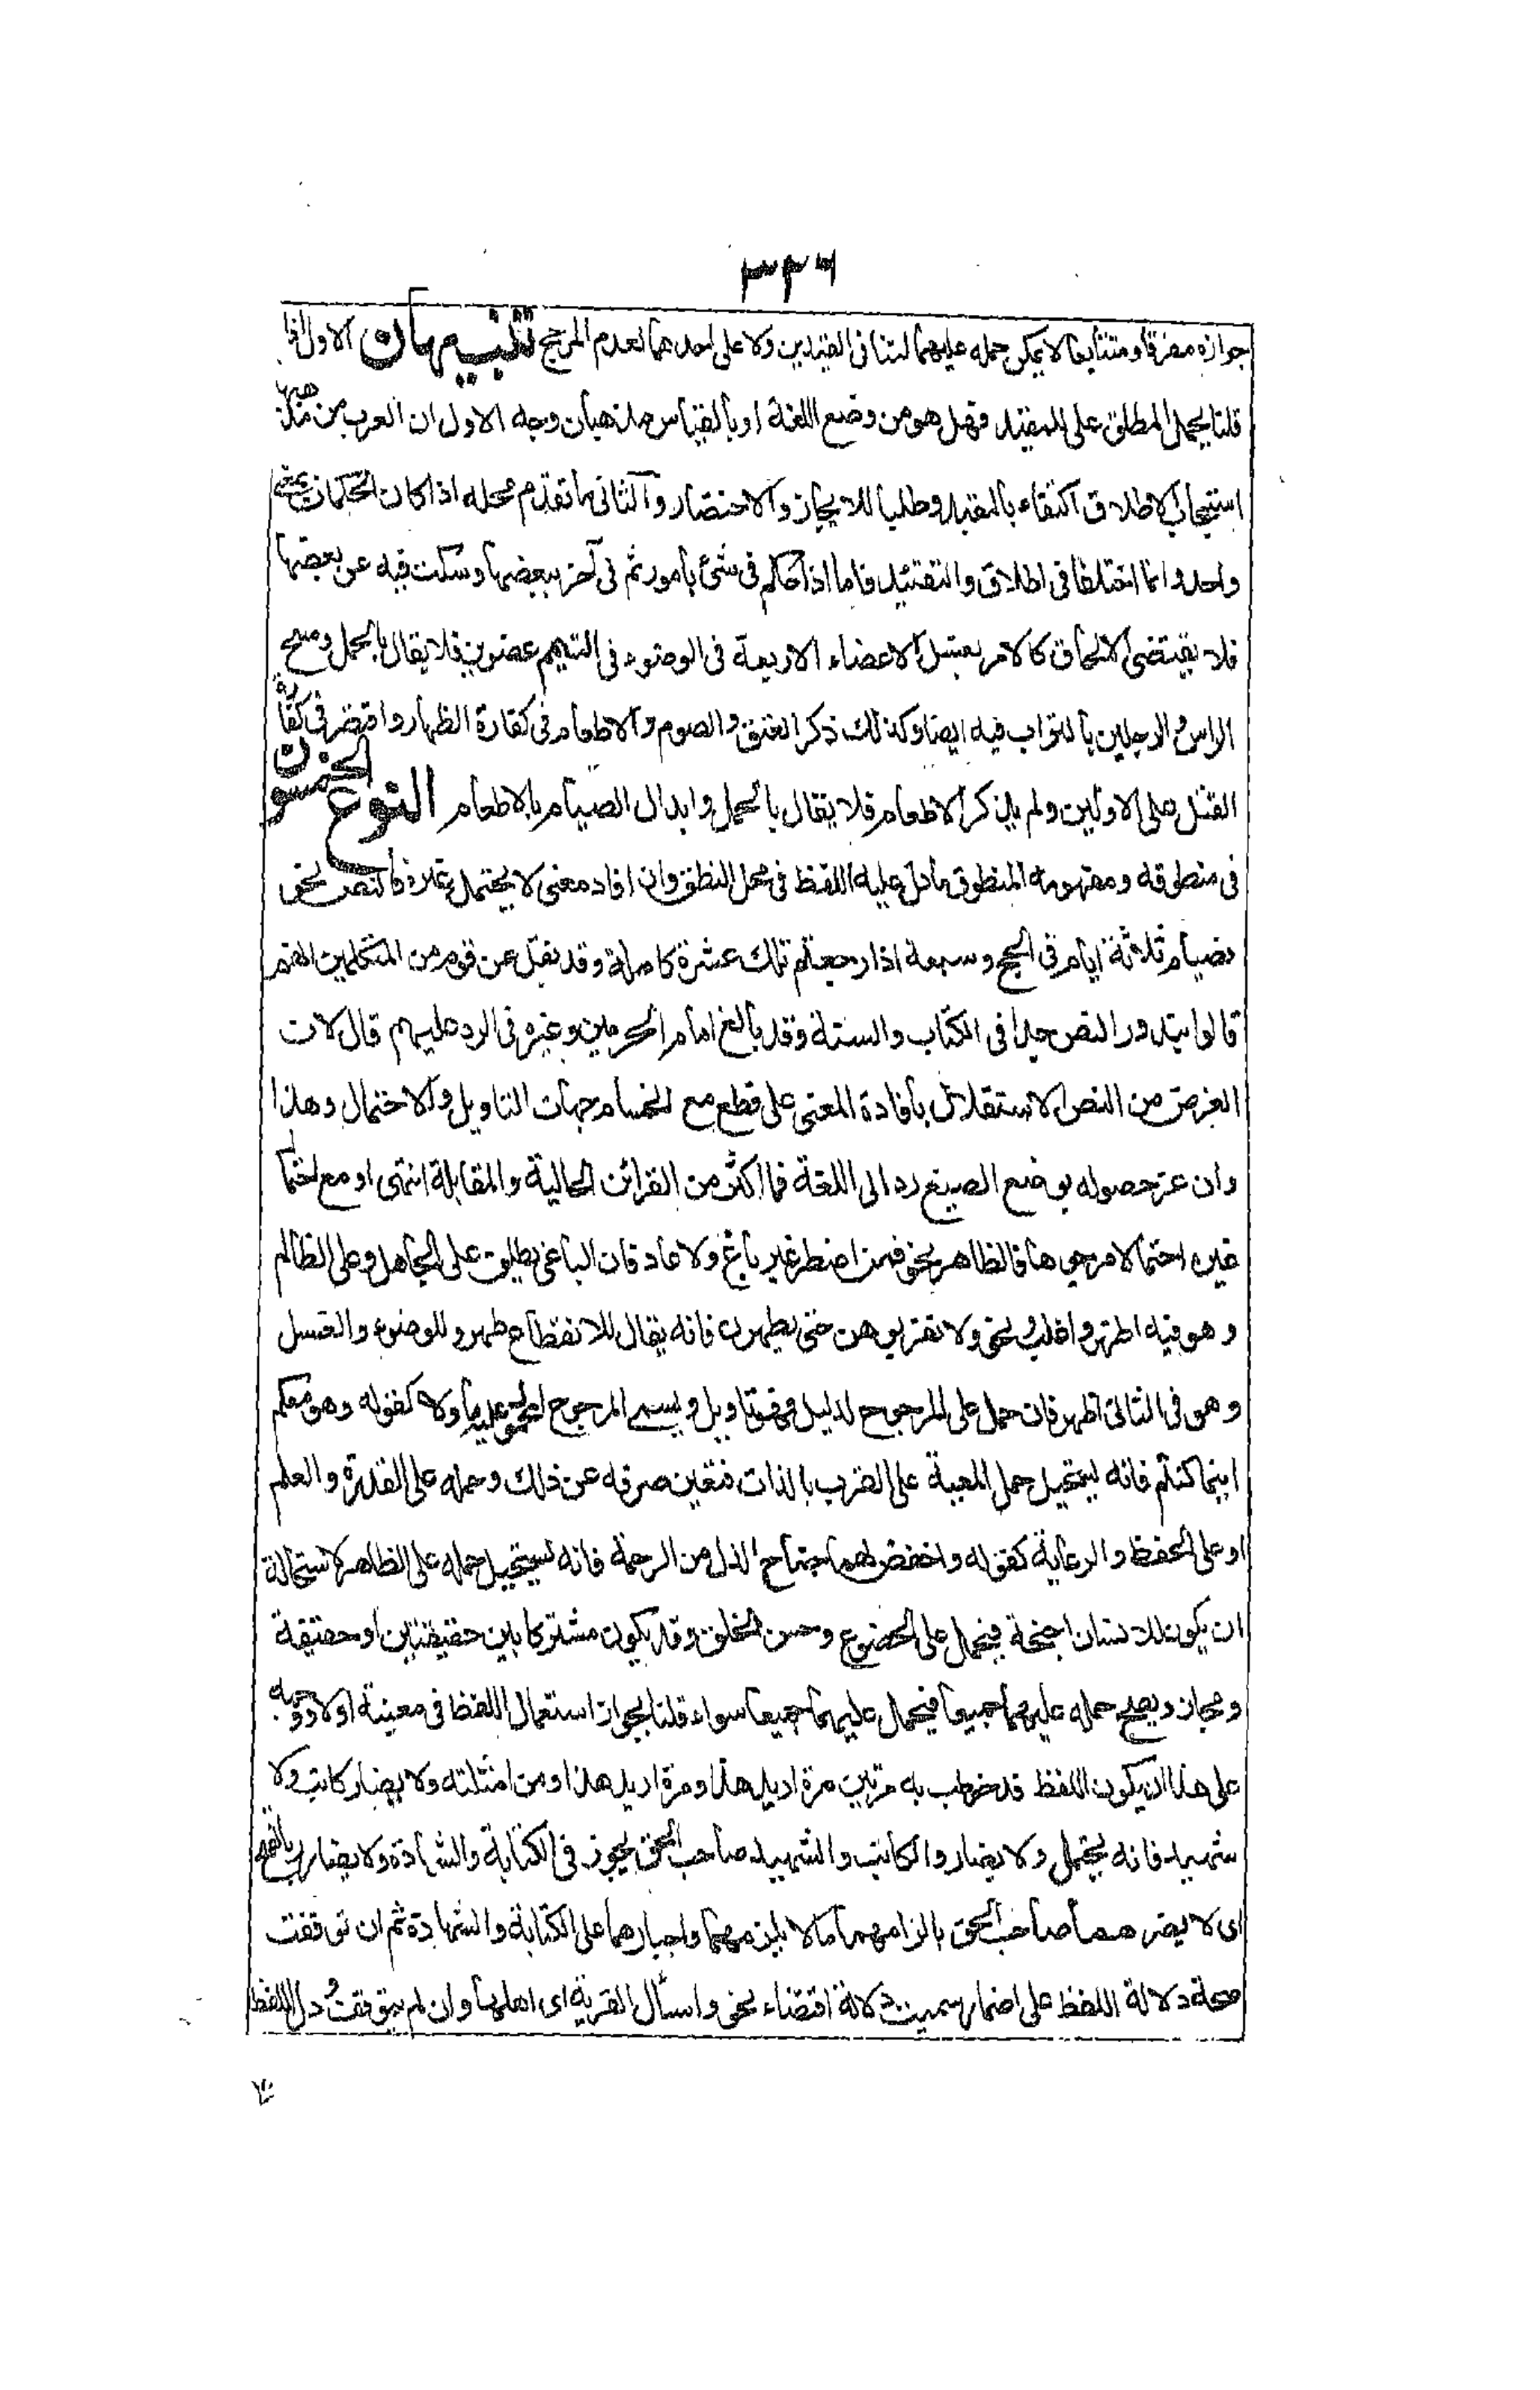 ٣٢٦
جوازه مفرقا ومتتابعا لا يمكن حمله عليهما لتنافى القيدين ولا على احدهما لعدم المرجح تنبيهان الاول اذا
قلنا يحمل المطلق على المقيد فهل هو من وضع اللغة او بالقياس مذهبان وجه الاول ان العرب من مذهبها
استحباب الاطلاق اكتفاء بالمقيد وطلبا للايجاز والاختصار والثانى ما تقدم محله اذا كان الحكمان بمعنى
واحد وانما اختلفا فى اطلاق والتقئيد فاما اذا حكم فى شئ بامور ثم فى آخر ببعضها وسكت فيه عن بعضها
فلا يقتضى الالحاق كالامر بغسل الاعضاء الاربعة فى الوضوء فى التيمم عضوين فلا يقال بالحمل ومسح
الراس والرجلين بالتراب فيه ايضا وكذلك ذكر العتق والصوم والاطعام فى كفارة الظهار واقتصر فى كفارة
القتل على الاولين ولم يذكر الاطعام فلا يقال بالحمل وابدال الصيام بالاطعام النوع الخمسون
فى منطوقه ومفهومه المنطوق ما دل عليه اللفظ فى محل النطق وان افاد معنى لا يحتمل غيره فالنص نحو
فصيام ثلاثة ايام فى الحج وسبعة اذا رجعتم تلك عشرة كاملة وقد نقل عن قوم من المتكلمين انهم
قالوا بندور النص جدا فى الكتاب والسنة وقد بالغ امام الحرمين وغيره فى الرد عليهم قال لان
الغرض من النص الاستقلال بافادة المعنى على قطع مع انحسام جهات التاويل والاحتمال وهذا
وان عز حصوله بوضع الصيغ ردا الى اللغة فما اكثر من القرائن الحالية والمقابلة انتهى او مع احتما
غيره احتمالا مرجوحا فالظاهر نحو فمن اضطر غير باغ ولا عاد فان الباغى يطلق على الجاهل وعلى الظالم
وهو فيه اظهر واغلب ونحو ولا تقربوهن حتى يطهرن فانه يقال للانقطاع طهر وللوضوء والغسل
وهو فى الثانى اظهر فان حمل على المرجوح لدليل فهو تاويل ويسمى المرجوح المحمول عليه ماولا كقوله وهو معكم
اينما كنتم فانه يستحيل حمل المعية على القرب بالذات فتعين صرفه عن ذلك وحمله على القدرة والعلم
او على الحفظ والرعاية كقوله واخفض لهما جناح الذل من الرحمة فانه يستحيل حمله على الظاهر لاستحالة
ان يكون للانسان اجنحة فيحمل على الخضوع وحسن الخلق وقد يكون مشتركا بين حقيقتين او حقيقة
ومجاز ويصح حمله عليهما جميعا فيحمل عليهما جميعا سواء قلنا بجواز استعمال اللفظ فى معنييه اولا ووجهه
على هذا ان يكون اللفظ قد خوطب به مرتين مرة اريد هذا ومرة اريد هذا ومن امثلته ولا يضار كاتب ولا
شهيد فانه يحتمل ولا يضار والكاتب والشهيد صاحب الحق بجور فى الكتابة والشهادة ولا يضارر بالفتح
اى لا يضرهما صاحب الحق بالزامهما ما لا يلزمهما واجبارهما على الكتابة والشهادة ثم ان توقفت
صحة دلالة اللفظ على اضمار سميت دلالة اقتضاء نحو واسأل القرية اى اهلها وان لم يتوقف ودل اللفظ